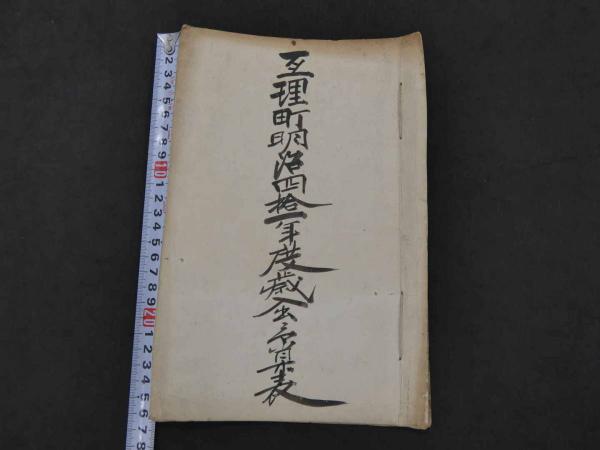 亙理町明治四拾一年度歳入出予算表
2 3 4 5 6 7 8 9 10 1 2 3 4 5 6 7 8 9 20 1 2 3 4 5 6 7 8